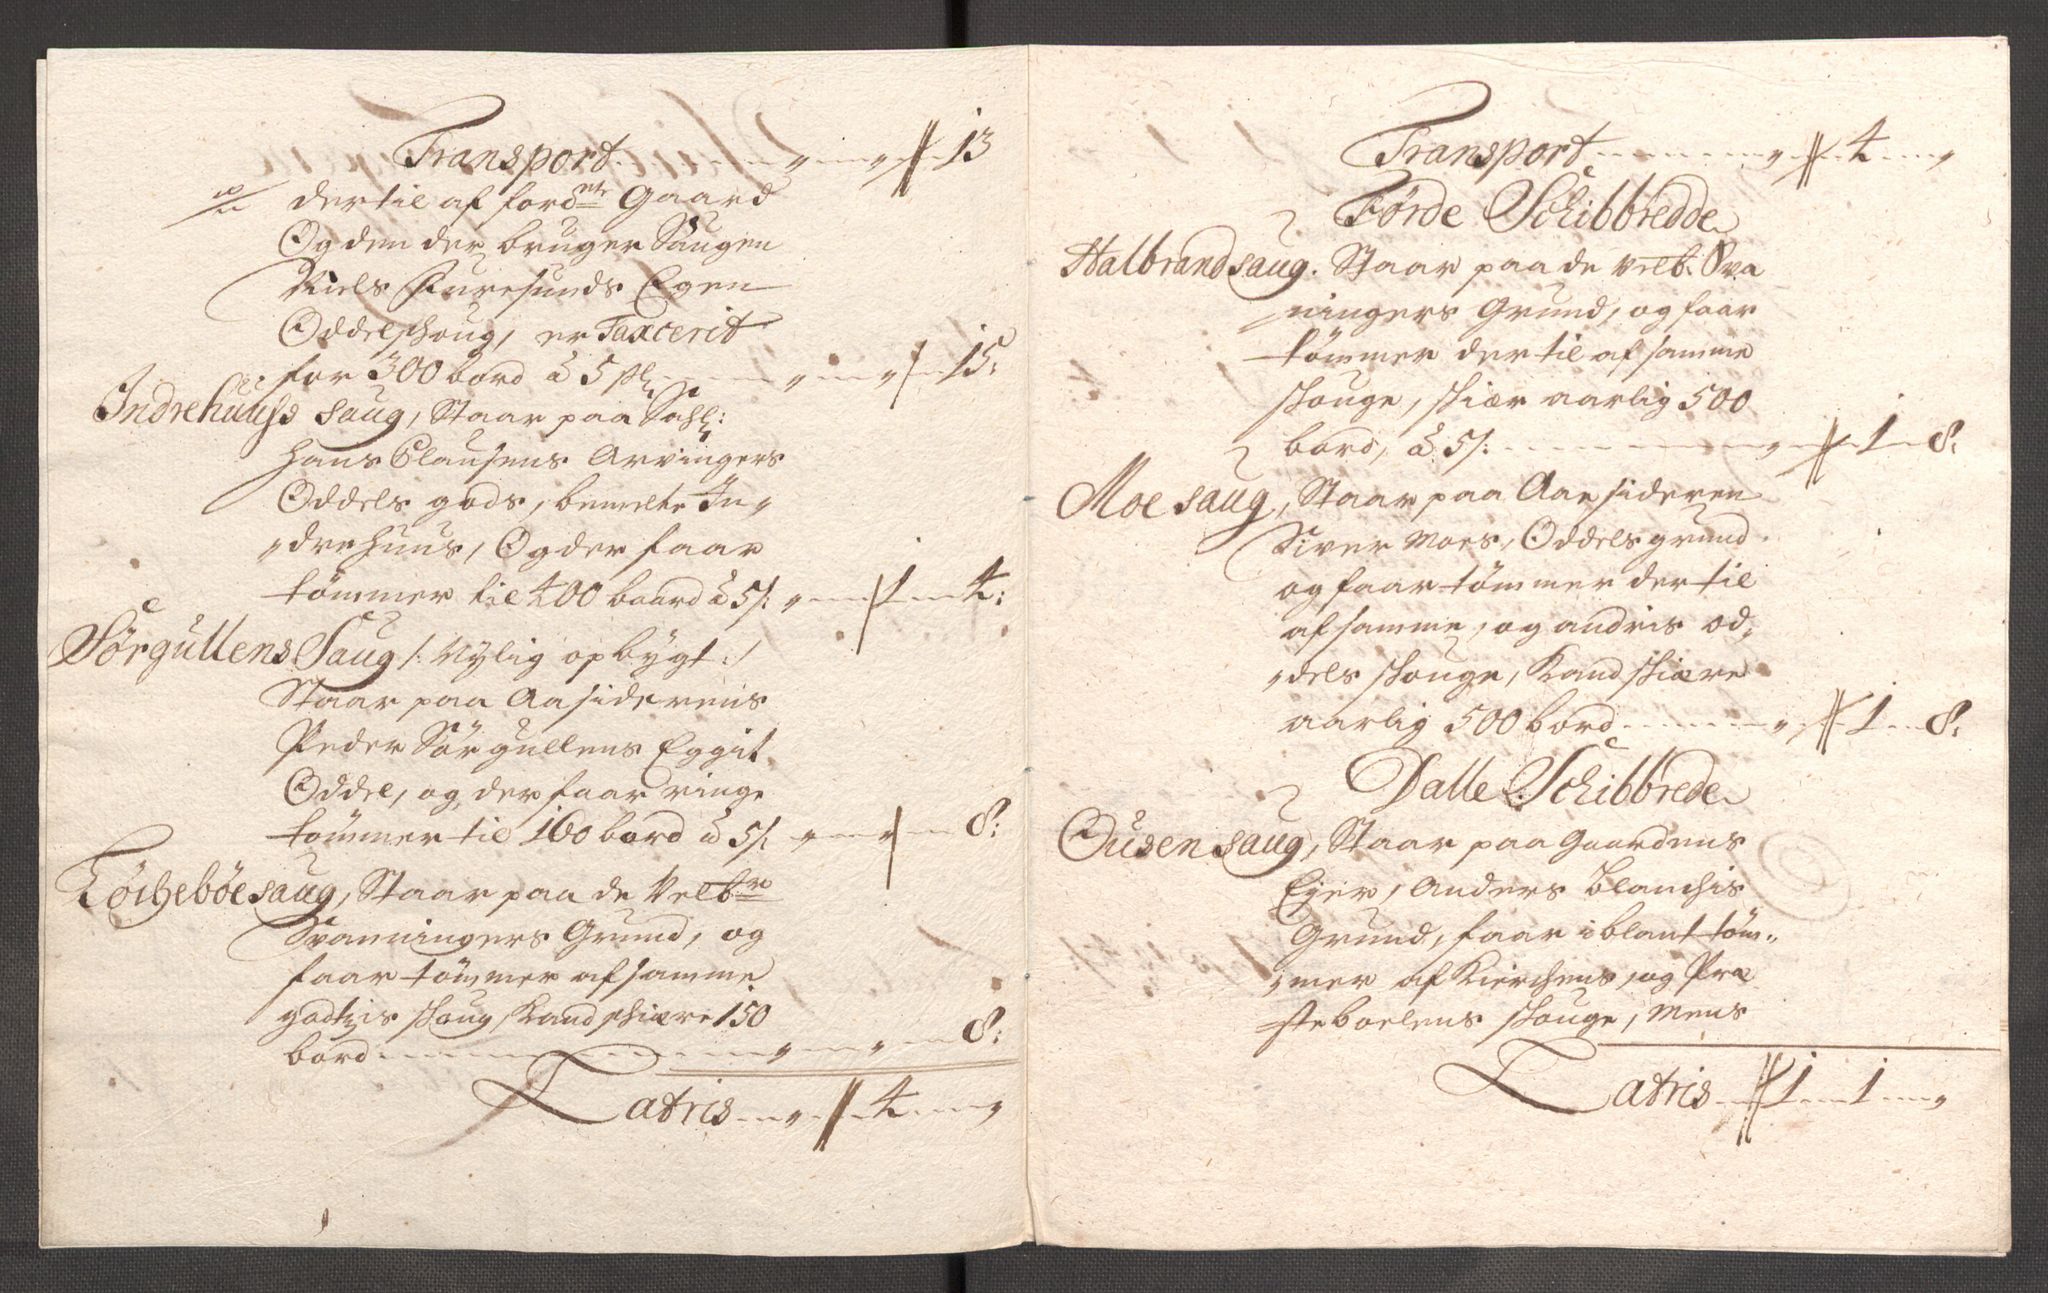 Transport 13
dertil af fordnte Gaard
Og den der bruger Saugen
Niels Furesunds Egen
Oddelschoug, er Taxcerit
for 300 bord a 5 sk 15:
Indrehuuse saug, Staar paa Sahl:
Hans Clausens Arvingers
Oddels gods, bemelte In-
drehuus, Og der faar
tømmer til 400 baard a 5/: 1 4:
Sørgullens Saug /: Nylig opbygt :/
Staar paa Aasiderens
Peder Sørgullens Eggit
Oddel, og der faar ringe
tømmer til 160 bord a 5/: 8:
saug, Staar paa de Velbr
Svanningers Grund, og
faar tømmer af samme
godtzis skoug, Kand schiære 150
bord 8:
Latris 4
Transport 4
Førde Schibbredde
Halbrand saug. Staar paa de Velb: Sva
ningers Grund, og faar
tømmer dertil af samme
skouge, skiær aarlig 500
bord, a 5/: 1 8:
Moe saug, Staar paa Aaesideren
Siver Moes, Oddels grund
og faar tømmer dertil
af samme, og andris od-
dels skouge, Kand skiære
aarlig 500 bord 1 8:
Dalle Schibbrede
Ousen saug, Staar paa Gaardens
Ejer, Anders Blanchis
Grund, faar iblant tøm-
mer af Kierchens, og Præ
steboelens skouge, mens
Latris 1 1